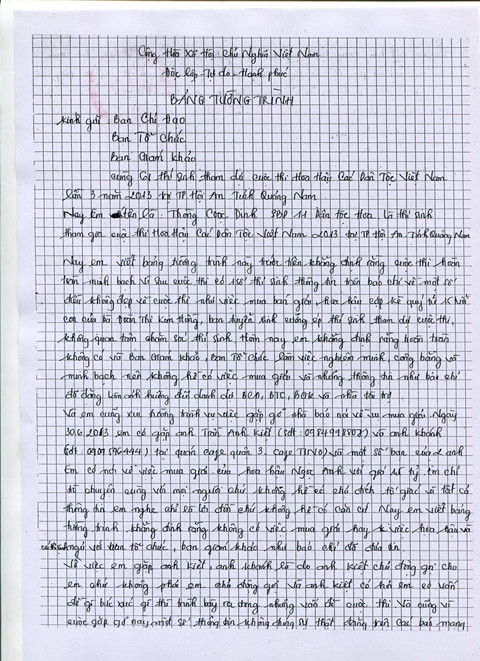 Cộng Hòa Xã Hội Chủ Nghĩa Việt Nam
Độc lập - Tự do - Hạnh phúc
BẢNG TƯỜNG TRÌNH
Kính gửi : Ban Chỉ Đạo
Ban Tổ Chức
Ban Giám Khảo
cùng 61 thí sinh tham dự cuộc thi Hoa Hậu Các Dân Tộc Việt Nam
lần 3 năm 2013 tại TP Hội An Tỉnh Quảng Nam
Nay Em tên là : Thông Cọoc Dinh SBD 11 Dân tộc Hoa Là thí sinh
tham gia cuộc thi Hoa Hậu Các Dân Tộc Việt Nam 2013 tại TP Hội An Tỉnh Quảng Nam
Nay em viết bảng tường trình này trước tiên khẳng định rằng cuộc thi hoàn
toàn minh bạch Vì sau cuộc thi có 1 số thí sinh thông tin trên báo chí về một số
điều không đẹp về cuộc thi như việc mua bán giải,
con của bà Đoàn Thị Kim Hồng, ban tuyển sinh cưỡng ép thí sinh tham dự cuộc thi,
không quan tâm chăm sóc thí sinh Hôm nay em khẳng định rằng hoàn toàn
không có và Ban Giám khảo, Ban Tổ Chức làm việc nghiêm minh, công bằng và
minh bạch nên không hề có việc mua giải và những thông tin như báo chí
đã đăng làm ảnh hưởng đến danh dự BCĐ, BTC, BGK và nhà tài trợ
Và em cũng xin tường trình vụ việc gặp gỡ nhà báo nói về vụ mua giải Ngày
30.6.2013 em có gặp anh Trần Anh Kiết (sđt: 0984998507) và anh Khánh
(sđt: 0909596444) tại quán cafe quận 3. Cafe TINO) và một số bạn của 2 anh
Em có nói về việc mua giải của hoa hậu Ngọc Anh với giá tỷ, Em chỉ
nói chuyện cùng với mọi người chứ không hề có chủ đích tố giác vì tất cả
thông tin em nghe chỉ là lời đồn chứ không hề có căn cứ Nay em viết bảng
tường trình khẳng định rằng không có việc mua giải hay việc hoa hậu và
với ban tổ chức, ban giám khảo như báo chí đã đưa tin
Về việc em gặp anh Kiết, anh Khánh là do anh Kiết chủ động gọi cho
em chứ không phải em chủ động gọi và anh Kiết có hỏi em có vấn
đề gì bức xúc gì thì trình bày ra trong những vấn đề cuộc thi Và cũng vì
cuộc gặp gỡ này một số thông tin không đúng sự thật đăng trên các báo mạng